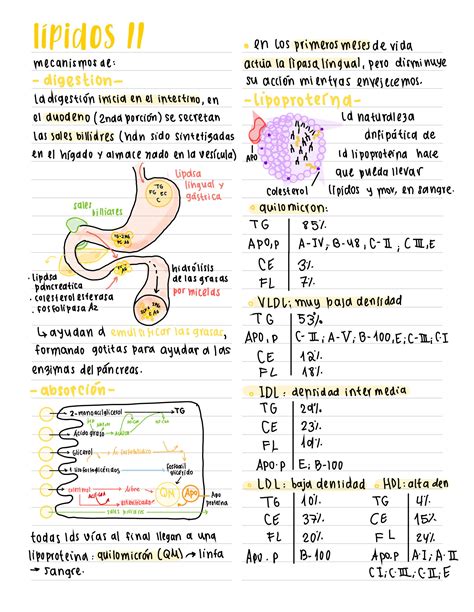 lípidos II
mecanismos de:
- digestión -
La digestión inicia en el intestino, en
el duodeno (2nda porción) se secretan
las sales biliares (han sido sintetizadas
en el hígado y almacenado en la vesícula)
lipasa
lingual y
gástrica
TG
FG EC
C
sales
biliares
· lipasa
pancreatica
· colesterol esterasa
· fosfolipasa A2
hidrólisis
de las grasas
por micelas
↳ ayudan a emulsificar las grasas,
formando gotitas para ayudar a las
enzimas del páncreas.
- absorción -
2-monoacilglicerol → TG
Ácido graso
glicerol
fosfolípidos
colesterol
libre
esterificado
QM
Apo
Apo
proteína
sales biliares
todas las vías al final llegan a una
lipoproteína: quilomicrón (QM) → linfa
→ sangre.
• en los primeros meses de vida
actúa la lipasa lingual, pero disminuye
su acción mientras envejecemos.
- Lipoproteína -
La naturaleza
anfipática de
la lipoproteína hace
que pueda llevar
lípidos y mov, en sangre.
APO
Colesterol
• quilomicrón:
TG 85%
APO,P A-IV, B-48, C-II, CIII, E
CE 3%
FL 7%
• VLDL: muy baja densidad
TG 53%
APO.P C-II; A-V; B-100, E; C-III; CI
CE 12%
FL 18%
• IDL: densidad intermedia
TG 29%
CE 23%
FL 19%
APO.P E; B-100
• LDL: baja densidad
TG 10%
CE 37%
FL 20%
APO.P B-100
HDL: alta den
TG 4%
CE 15%
FL 24%
APO.P A-I; A-II
CI; C-III; C-II; E